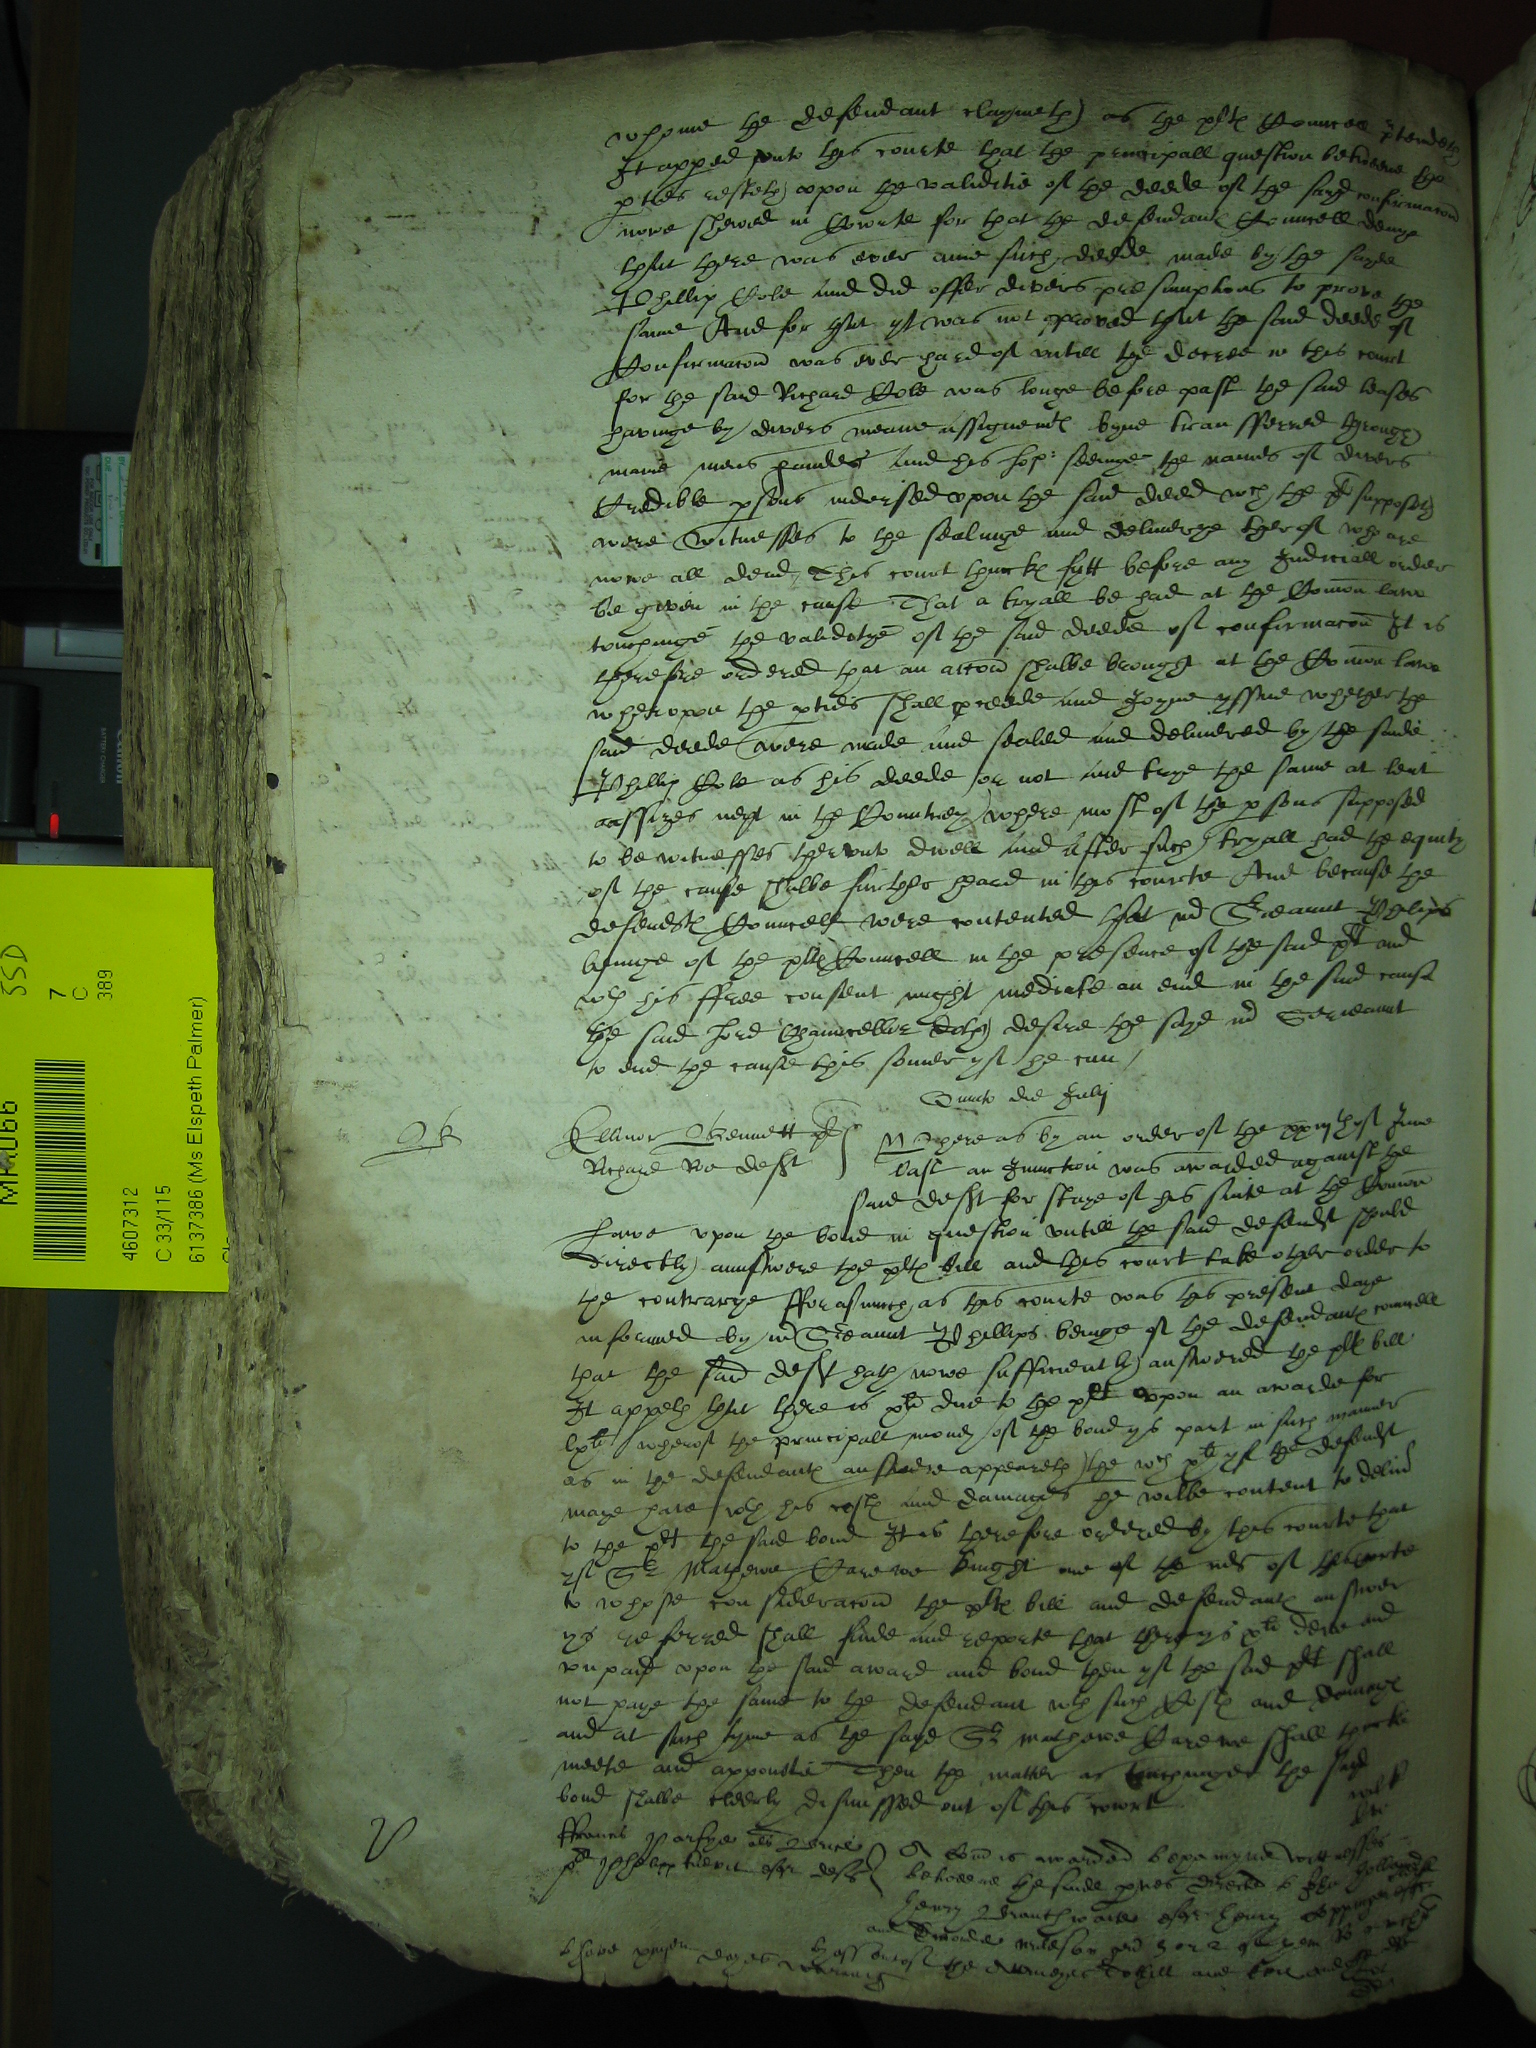 whome the defendant claymeth) as the plts Councell ptendeth
It apped unto this courte that the principall question betweene the
pties resteth upon the validitie of the deede of the sayd confirmacon
nowe shewed in Courte for that the defendants Councell denye
that there was ever anie such deede made by the sayde
Phillip Cole And did offer divers presumptions to prove the
same And for that yt was not proved that the said deede of
Confirmacon was ever hard of untill the decree in this court
for the said Richard Cole was longe before past the said leases
havinge by divers meane assignemts byne transferred through
manie mens handes And his Lop: seeinge the names of divers
Credible psons indorsed upon the said deed wch the plt supposeth
were witnesses to the sealinge and deliverye therof who are
nowe all dead, This court thincks fytt before any Judiciall order
be given in the cause That a tryall be had at the Comon lawe
touchinge the validetye of the said deede of confirmacon It is
therefore ordered that an accon shalbe brought at the Comon lawe
wherupon the pties shall pceede and Joyne yssue whether the
said deede were made and sealed and delivered by the saide
Phillip Cole as his deede or not And trye the same at lent
assizes next in the Countrey where most of the psons supposed
to be witnesses therunto dwell And after such tryall had the equity
of the cause shalbe further heard in this courte And because the
defendts Councell were contented that mr Sreaunt Phelips
beinge of the plts Councell in the presence of the said plt and
wth his ffree consent might mediate an end in the said cause
the said Lord Chauncellor doth desire the sayd mr Serieaunt
to end the cause this somer yf he can /
Quinto die Julij
Ellinor Bennett plt
Richard Roe deft
Whereas by an order of the xxvijth of June
last an Iniunction was awarded against the
said deft for staye of his suite at the Comon
Lawe upon the bond in question untill the said defendt should
directly aunswere the plts bill and this court take other order to
the contrarye fforasmuch as this courte was this present daye
informed by mr Sreaunt Phillips beinge of the defendants councell
that the said deft hath nowe sufficiently answered the plts bill
It appeth that there is xli due to the plt upon an awarde for
lxli wherof the principall money of the bond ys part in such manner
as in the defendants answere appeareth the wch xli yf the defendt
maye have wth his costs and damages he wilbe content to delivr
to the plt the said bond It is therefore ordered by this courte that
yf Sr Mathewe Carewe knight one of the mrs of this courte
to whose consideracon the plts bill and defendants answer
ys referred shall finde and reporte that there ys xli dewe and
unpaid upon the said award and bond then yf the said plt shall
not paye the same to the defendant wth such Costs and damages
and at such tyme as the sayd Sr Mathewe Carewe shall thincke
meete and appointe Then the matter as touchinge the said
bond shalbe clearly dismissed out of this court
ffrancis als
plt esqr deft
A Comn is awarded to examyne wittnesses
betweene the saide pties directed to John
Henry esqr Henry
and
daies warning the
MA066
SSD
7
C
389
4607312
C 33/115
6137386 (Ms Elspeth Palmer)
Canon
BATTERY CHARGER